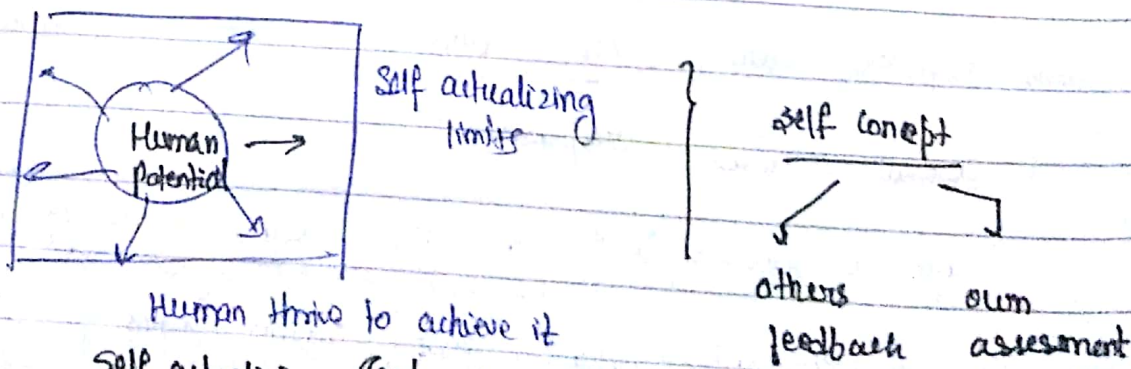 Human
potential
Self actualizing
limits
Human thrive to achieve it
self concept
others
feedback
own
assesment
Self